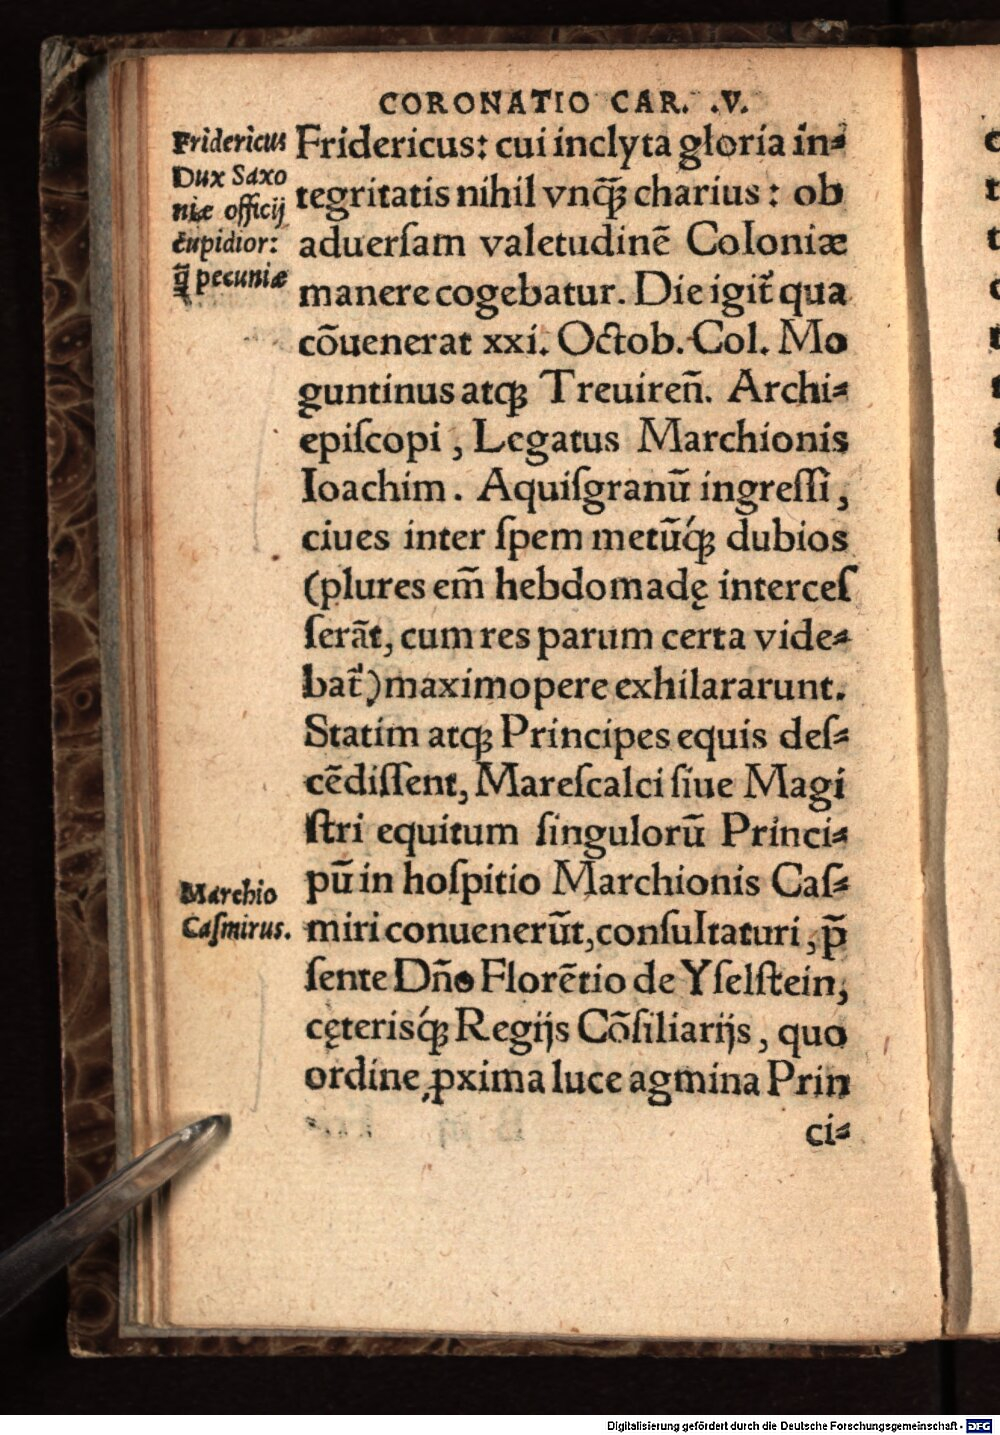 CORONATIO CAR. .V.
Fridericus
Dux Saxo
niæ officij
cupidior:
q̃ pecuniæ
Fridericus: cui inclyta gloria in⸗
tegritatis nihil vnq̃ꝫ charius : ob
aduerſam valetudinẽ Coloniæ
manere cogebatur. Die igit᷑ qua
cõuenerat xxi. Octob. Col. Mo
guntinus atqꝫ Treuireñ. Archi⸗
epiſcopi , Legatus Marchionis
Ioachim . Aquiſgranũ ingreſſi ,
ciues inter ſpem metũq́ꝫ dubios
(plures em̃ hebdomadę interceſ
ſerãt, cum res parum certa vide⸗
bat᷑) maximopere exhilararunt.
Statim atqꝫ Principes equis deſ⸗
cẽdiſſent, Mareſcalci ſiue Magi
ſtri equitum ſingulorũ Princi⸗
pũ in hoſpitio Marchionis Caſ⸗
miri conuenerũt, conſultaturi , p̃
ſente Dño Florẽtio de Yſelſtein,
cęterisq́ꝫ Regijs Cõſiliarijs , quo
ordine ꝓxima luce agmina Prin
ci⸗
Marchio
Caſmirus.
Digitalisierung gefördert durch die Deutsche Forschungsgemeinschaft - DFG